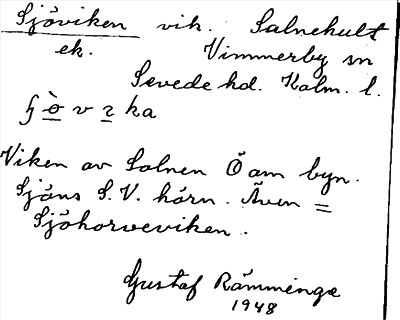 Sjöviken vik. Salnehult
ek. Vimmerby sn
Sevede hd. Kalm. l.
ka
Viken av Solnen Ö am byn.
Sjöns S.V. hörn. Även =
Sjöhorveviken.
Gustaf Rämminge
1948